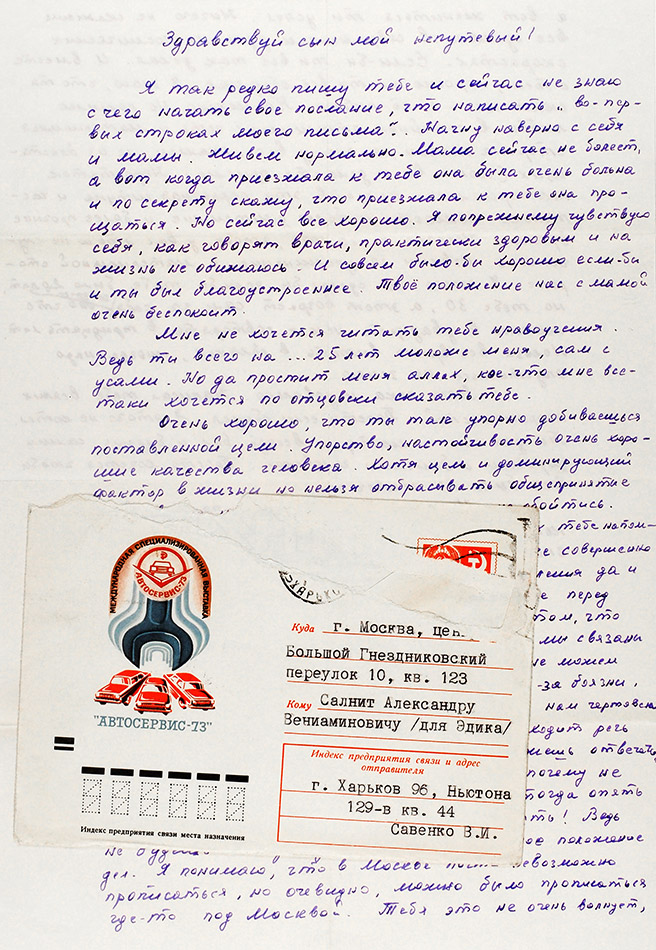 Здравствуй сын мой непутевый!
Я так редко пишу тебе и сейчас не знаю
с чего начать свое послание, что написать „во-пер-
вых строках моего письма". Начну наверно с себя
и мамы. Живем нормально. Мама сейчас не болеет,
а вот когда приезжала к тебе она была очень больна
и по секрету скажу, что приезжала к тебе она про-
щаться. Но сейчас все хорошо. Я попрежнему чувствую
себя, как говорят врачи, практически здоровым и на
жизнь не обижаюсь. И совсем было-бы хорошо если-бы
и ты был благоустроеннее. Твоё положение нас с мамой
очень беспокоит.
Мне не хочется читать тебе нравоучения.
Ведь ты всего на ... 25 лет моложе меня, сам с
усами. Но да простит меня аллах, кое-что мне все-
таки хочется по отцовски сказать тебе.
Очень хорошо, что ты так упорно добиваешься
поставленной цели. Упорство, настойчивость очень хоро-
шие качества человека. Хотя цель и доминирующий
фактор в жизни но нельзя отбрасывать общепринятые
обойтись.
тебе напом-
совершенно
да и
перед
что
мы связаны
не можем
-за боязни,
нам чертовски
ходит речь
отвечать
почему не
тогда опять
! Ведь
положение
не
дел. Я понимаю, что в Москве невозможно
прописаться, но очевидно, можно было прописаться
где-то под Москвой. Тебя это не очень волнует,
МЕЖДУНАРОДНАЯ СПЕЦИАЛИЗИРОВАННАЯ ВЫСТАВКА
АВТОСЕРВИС-73
"АВТОСЕРВИС-73"
ХАРЬКО
Куда г. Москва, цен
Большой Гнездниковский
переулок 10, кв. 123
Кому Салнит Александру
Вениаминовичу /для Эдика/
Индекс предприятия связи и адрес
отправителя
г. Харьков 96, Ньютона
129-в кв. 44
Савенко В.И.
Индекс предприятия связи места назначения